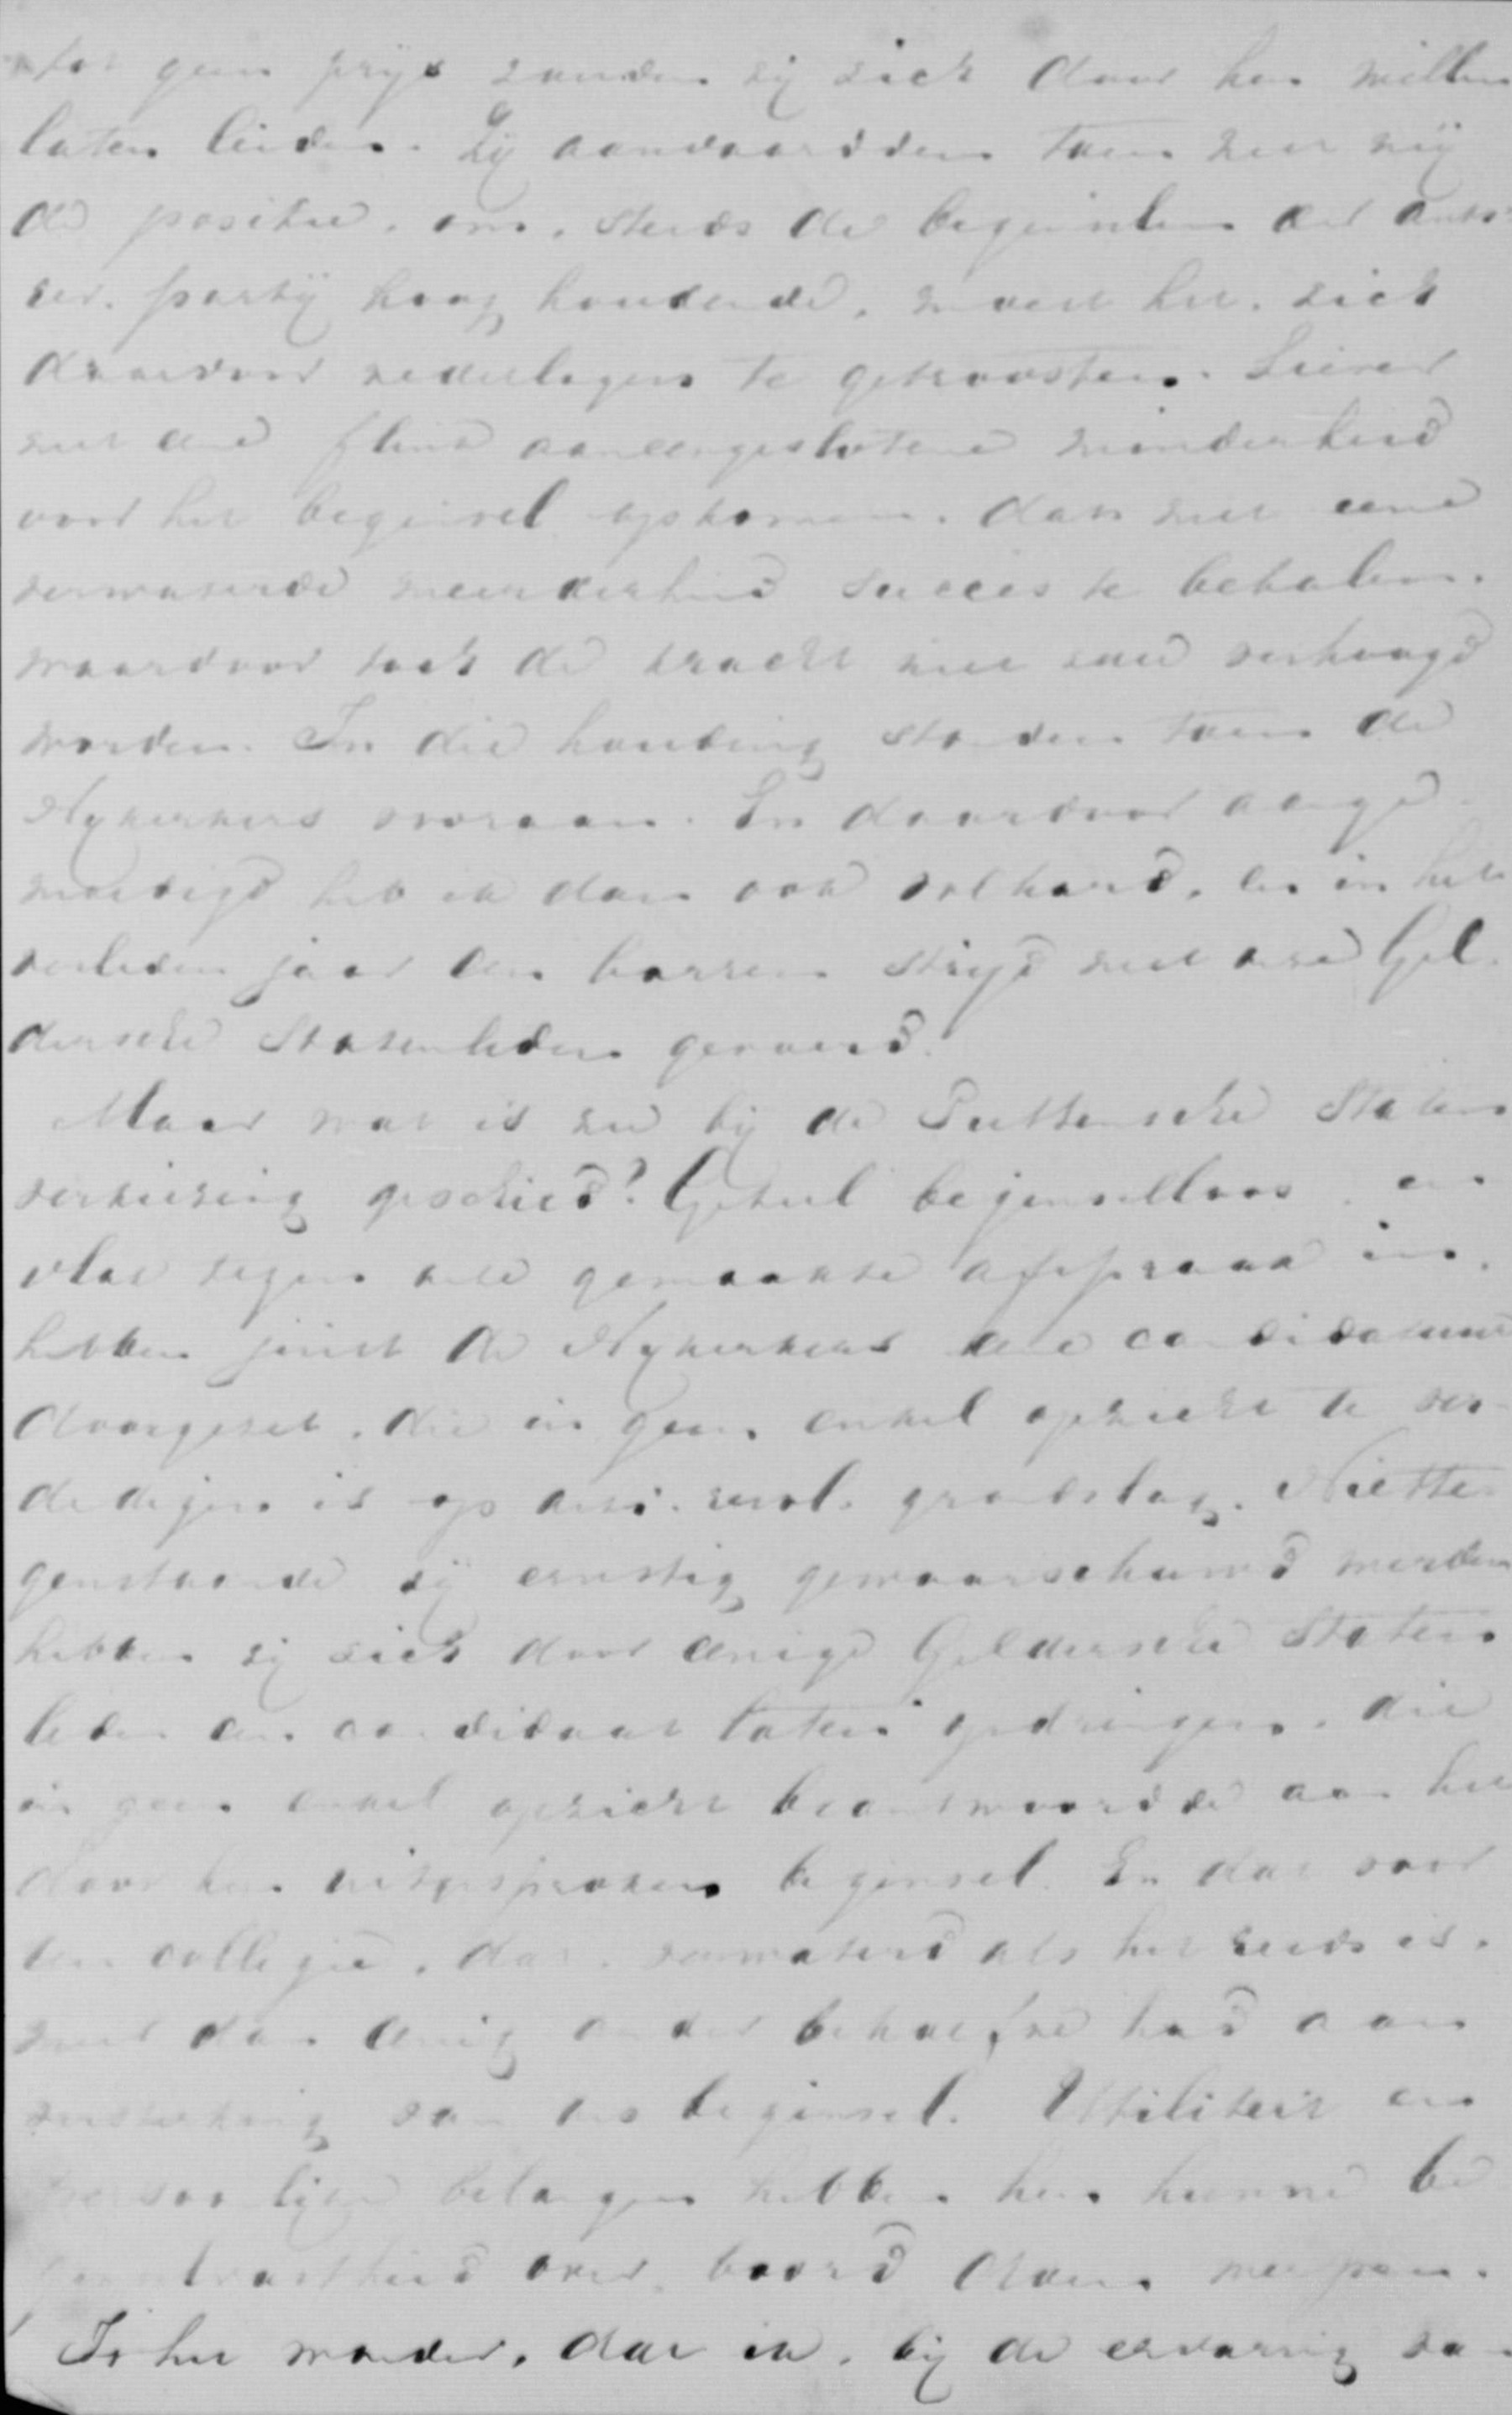 tot geen prijs zouden zij zich door hen willen
laten leiden. Zij aanvaardden toen met mij
de positie, om, steeds de beginselen der anti
rev. partij hoog houdende, moest het, zich
daarvoor nederlagen te getroosten. Liever
met eene flink aaneengeslotene minderheid
voor het beginsel opkomen, dan met eene
verwaterde meerderheid succes te behalen,
waardoor toch de kracht niet zou verhoogd
worden. In die houding stonden toen de
Nykerkers vooraan. En daardoor aange-
moedigd heb ik dan ook volhard, en in het
verleden jaar den barren strijd met onze Gel-
dersche Statenleden gevoerd.
Maar wat is nu bij de Puttensche Staten
verkiezing geschied? Geheel beginselloos en
vlak tegen alle gemaakte afspraak in,
hebben juist de Nykerkers eene candidatuur
doorgezet, die in geen enkel opzicht te ver-
dedigen is op anti-revol. grondslag. Niette-
genstaande zij ernstig gewaarschuwd werden
hebben zij zich door eenige Geldersche Staten
leden een candidaat laten opdringen, die
in geen enkel opzicht beantwoordde aan het
door hen uitgesproken beginsel. En dat voor
een collegie, dat, verwaterd als het reeds is,
meer dan eenig ander behoefte had aan
versterking van ons beginsel. Utiliteit en
persoonlijke belangen hebben hen hunne be
ginselvastheid over boord doen werpen.
Is het wonder, dat ik, bij de ervaring van